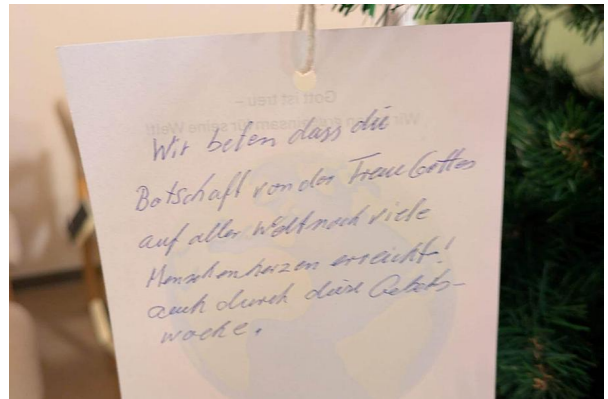 Wir beten dass die
Botschaft von der Treue Gottes
auf aller Welt noch viele
Menschenherzen erreicht!
auch durch diese Gebets-
woche.